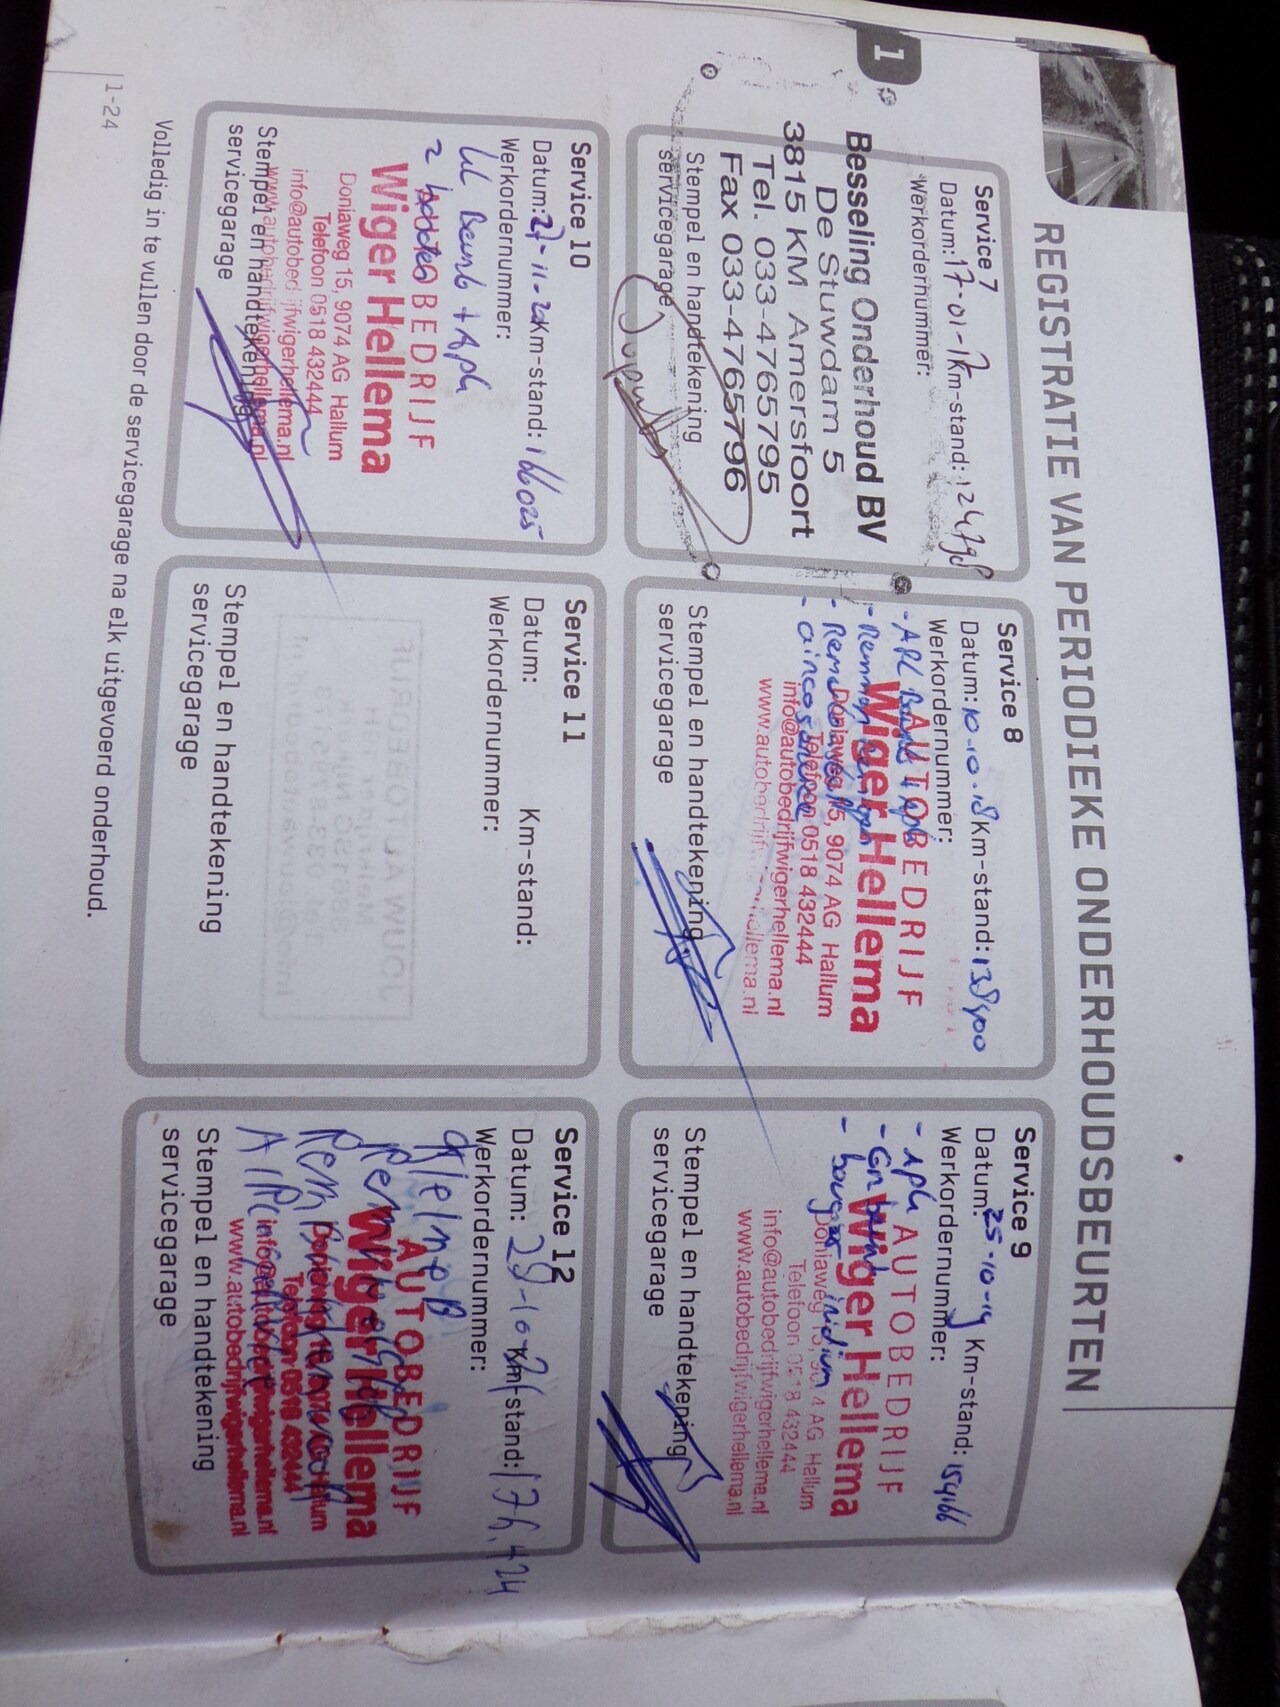 REGISTRATIE VAN PERIODIEKE ONDERHOUDSBEURTEN
1
Service 7
Datum: 17-01-17 Km-stand: 124798
Werkordernummer:
Besseling Onderhoud BV
De Stuwdam 5
3815 KM Amersfoort
Tel. 033-4765795
Fax 033-4765796
Stempel en handtekening
servicegarage
Service 8
Datum: 10-10-18 Km-stand: 138900
Werkordernummer:
AUTOBEDRIJF
Wiger Hellema
Doniaweg 15, 9074 AG Hallum
Telefoon 0518 432444
info@autobedrijfwigerhellema.nl
www.autobedrijfwigerhellema.nl
Stempel en handtekening
servicegarage
Service 9
Datum: 25-10-19 Km-stand: 154166
Werkordernummer:
- APK
- bougies iridium
AUTOBEDRIJF
Wiger Hellema
Doniaweg 15, 9074 AG Hallum
Telefoon 0518 432444
info@autobedrijfwigerhellema.nl
www.autobedrijfwigerhellema.nl
Stempel en handtekening
servicegarage
Service 10
Datum: 27-11-20 Km-stand: 166025
Werkordernummer:
Beurt + Apk
2
AUTOBEDRIJF
Wiger Hellema
Doniaweg 15, 9074 AG Hallum
Telefoon 0518 432444
info@autobedrijfwigerhellema.nl
www.autobedrijfwigerhellema.nl
Stempel en handtekening
servicegarage
Service 11
Datum: Km-stand:
Werkordernummer:
Stempel en handtekening
servicegarage
Service 12
Datum: 28-10-21 Km-stand: 176,424
Werkordernummer:
AUTOBEDRIJF
Wiger Hellema
Doniaweg 15, 9074 AG Hallum
Telefoon 0518 432444
info@autobedrijfwigerhellema.nl
www.autobedrijfwigerhellema.nl
Stempel en handtekening
servicegarage
Volledig in te vullen door de servicegarage na elk uitgevoerd onderhoud.
1-24